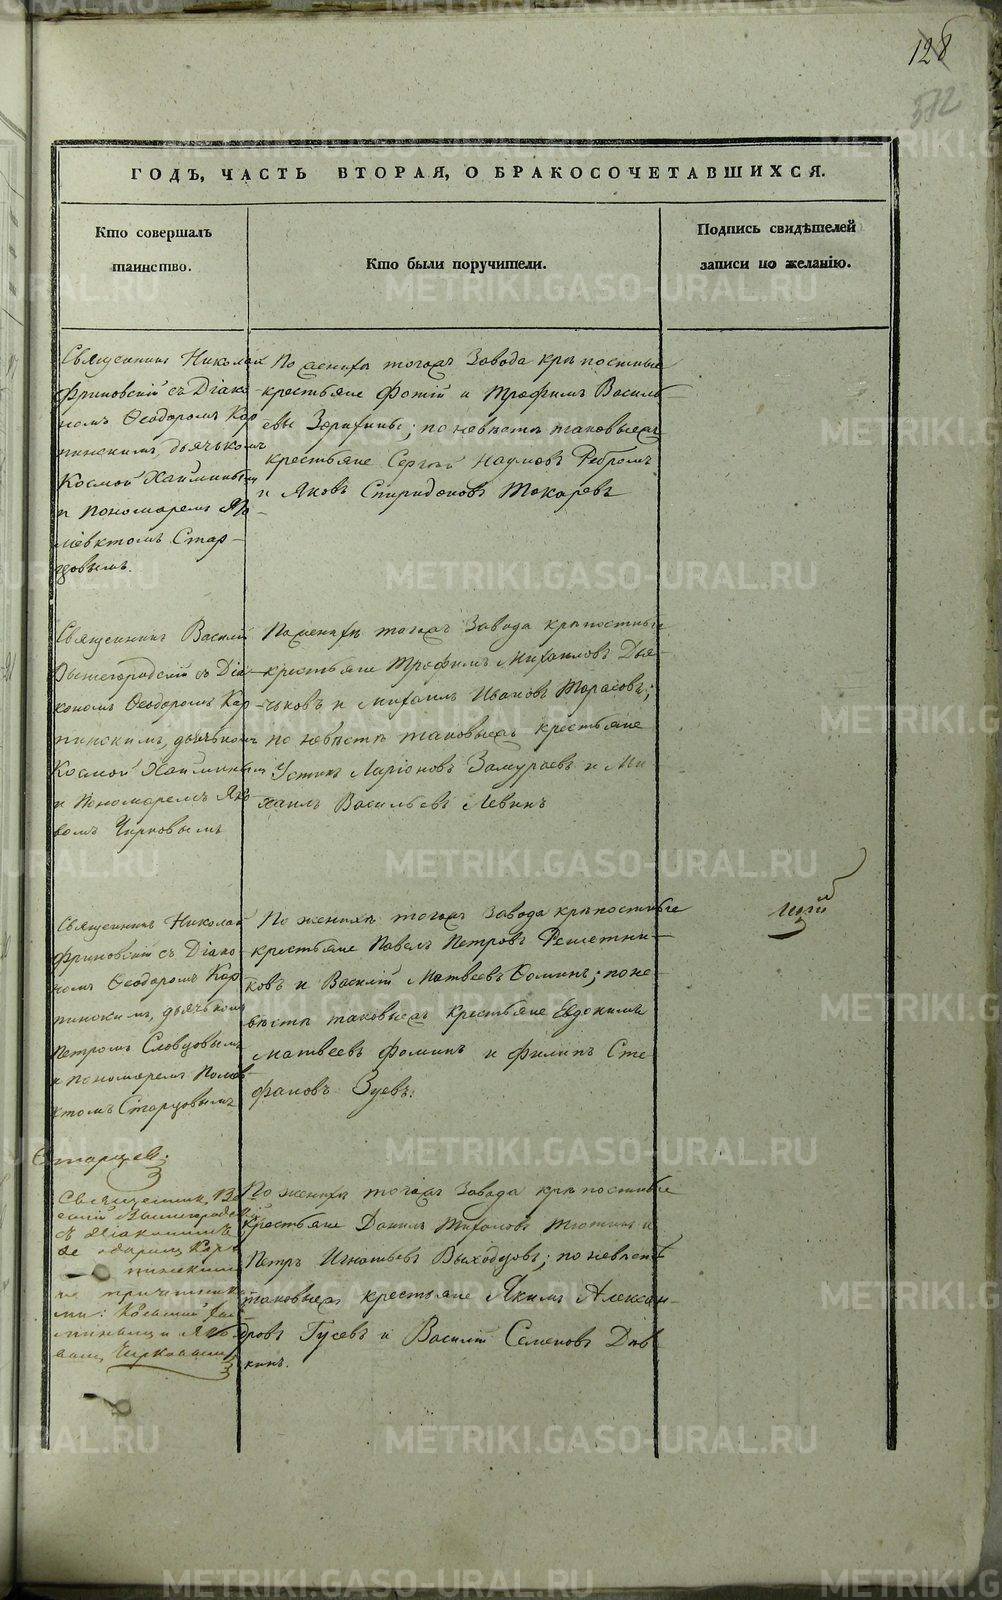 128
572
ГОДЪ, ЧАСТЬ ВТОРАЯ, О БРАКОСОЧЕТАВШИХСЯ.
Кто совершалъ
таинство.
Кто были поручители.
Подпись свидѣтелей
записи по желанію.
Священникъ Николай
Фриновскій съ Діако-
номъ Ѳеодоромъ Кар
пинскимъ, дьячькомъ
Космой Хайминымъ
и пономаремъ По
ліевктомъ Стар-
цовымъ.
По женихѣ тогожъ Завода крѣпостные
крестьяне Фотій и Трофимъ Василь
евы; по невѣстѣ таковыежъ
крестьяне Сергѣй Наумовъ
и Яковъ Спиридоновъ Токаревъ
Священникъ Василій
Вышегородскій съ Діа-
кономъ Ѳеодоромъ Кар
пинскимъ, дьячькомъ
Космой Хайминымъ
и Пономаремъ Яко
вомъ Чирковымъ
По женихѣ тогожъ Завода крѣпостные
крестьяне Трофимъ Михаиловъ Дья-
чьковъ и Михаилъ Ивановъ Тарасовъ;
по невѣстѣ таковыежъ крестьяне
Устинъ Ларіоновъ Замураевъ и Ми
хаилъ Васильевъ Левинъ
Священникъ Николай
Фриновскій съ Діако
номъ Ѳеодоромъ Кар
пинскимъ, дьячькомъ
Петромъ Словцовымъ
и пономаремъ Поліев
ктомъ Старцовымъ
По женихѣ тогожъ Завода крѣпостные
крестьяне Павелъ Петровъ Решетни-
ковъ и Василій Матвеевъ Ѳоминъ; по не
вѣстѣ таковыежъ крестьяне Евдокимъ
Матвеевъ Фоминъ и Филипъ Сте
фановъ Зуевъ.
Старцев
Священникъ Ва
силій Вышегородскій
съ Діакономъ
Ѳеодоромъ Кар
пинскимъ
и причетника
ми: Космой Хай
минымъ и Яко
вомъ Чирковымъ
По женихѣ тогожъ Завода крѣпостные
крестьяне Данилъ Тихоновъ и
Петръ Игнатьевъ Выходцовъ; по невѣстѣ
таковыежъ крестьяне Якимъ Алексан
дровъ Гусевъ и Василій Семеновъ Дѣв
кинъ.
METRIKI.GASO-URAL.RU